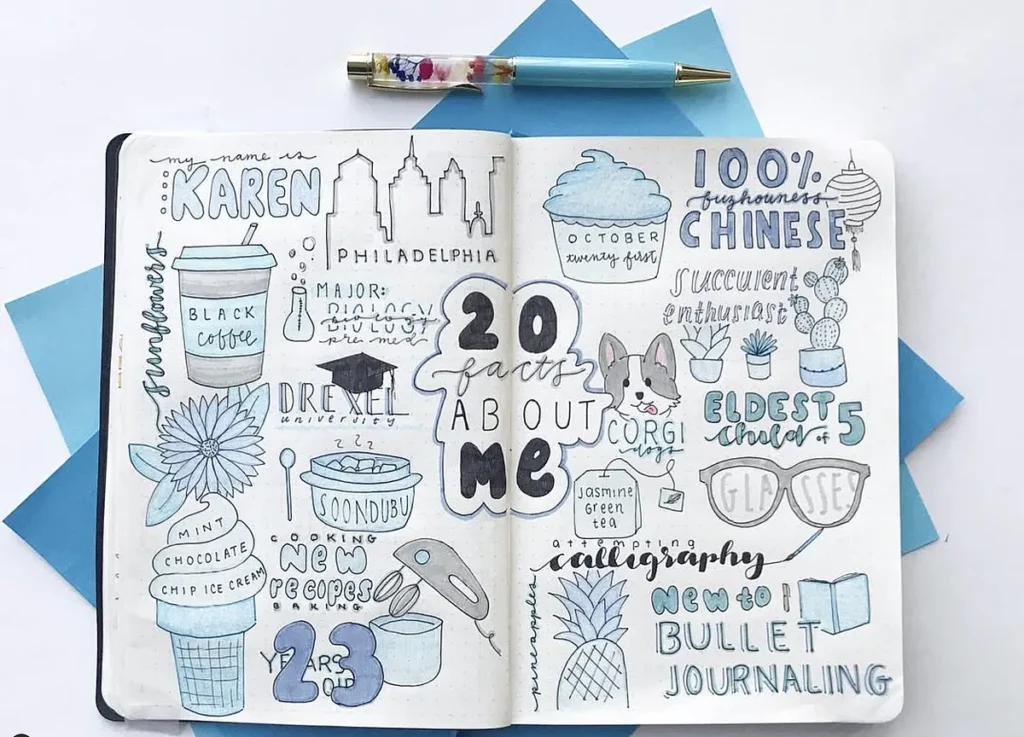 my name is
KAREN
PHILADELPHIA
sunflowers
BLACK
coffee
MAJOR:
BIOLOGY
pre med
DREXEL
university
SOONDUBU
MINT
CHOCOLATE
CHIP ICE CREAM
COOKING
NEW
recipes
BAKING
23
YEARS
OLD
20
facts
ABOUT
Me
OCTOBER
twenty first
100%
fuzhouness
CHINESE
succulent
enthusiast
CORGI
dogs
ELDEST
child of 5
jasmine
green
tea
GLASSES
attempting
calligraphy
pineapples
New to
BULLET
JOURNALING